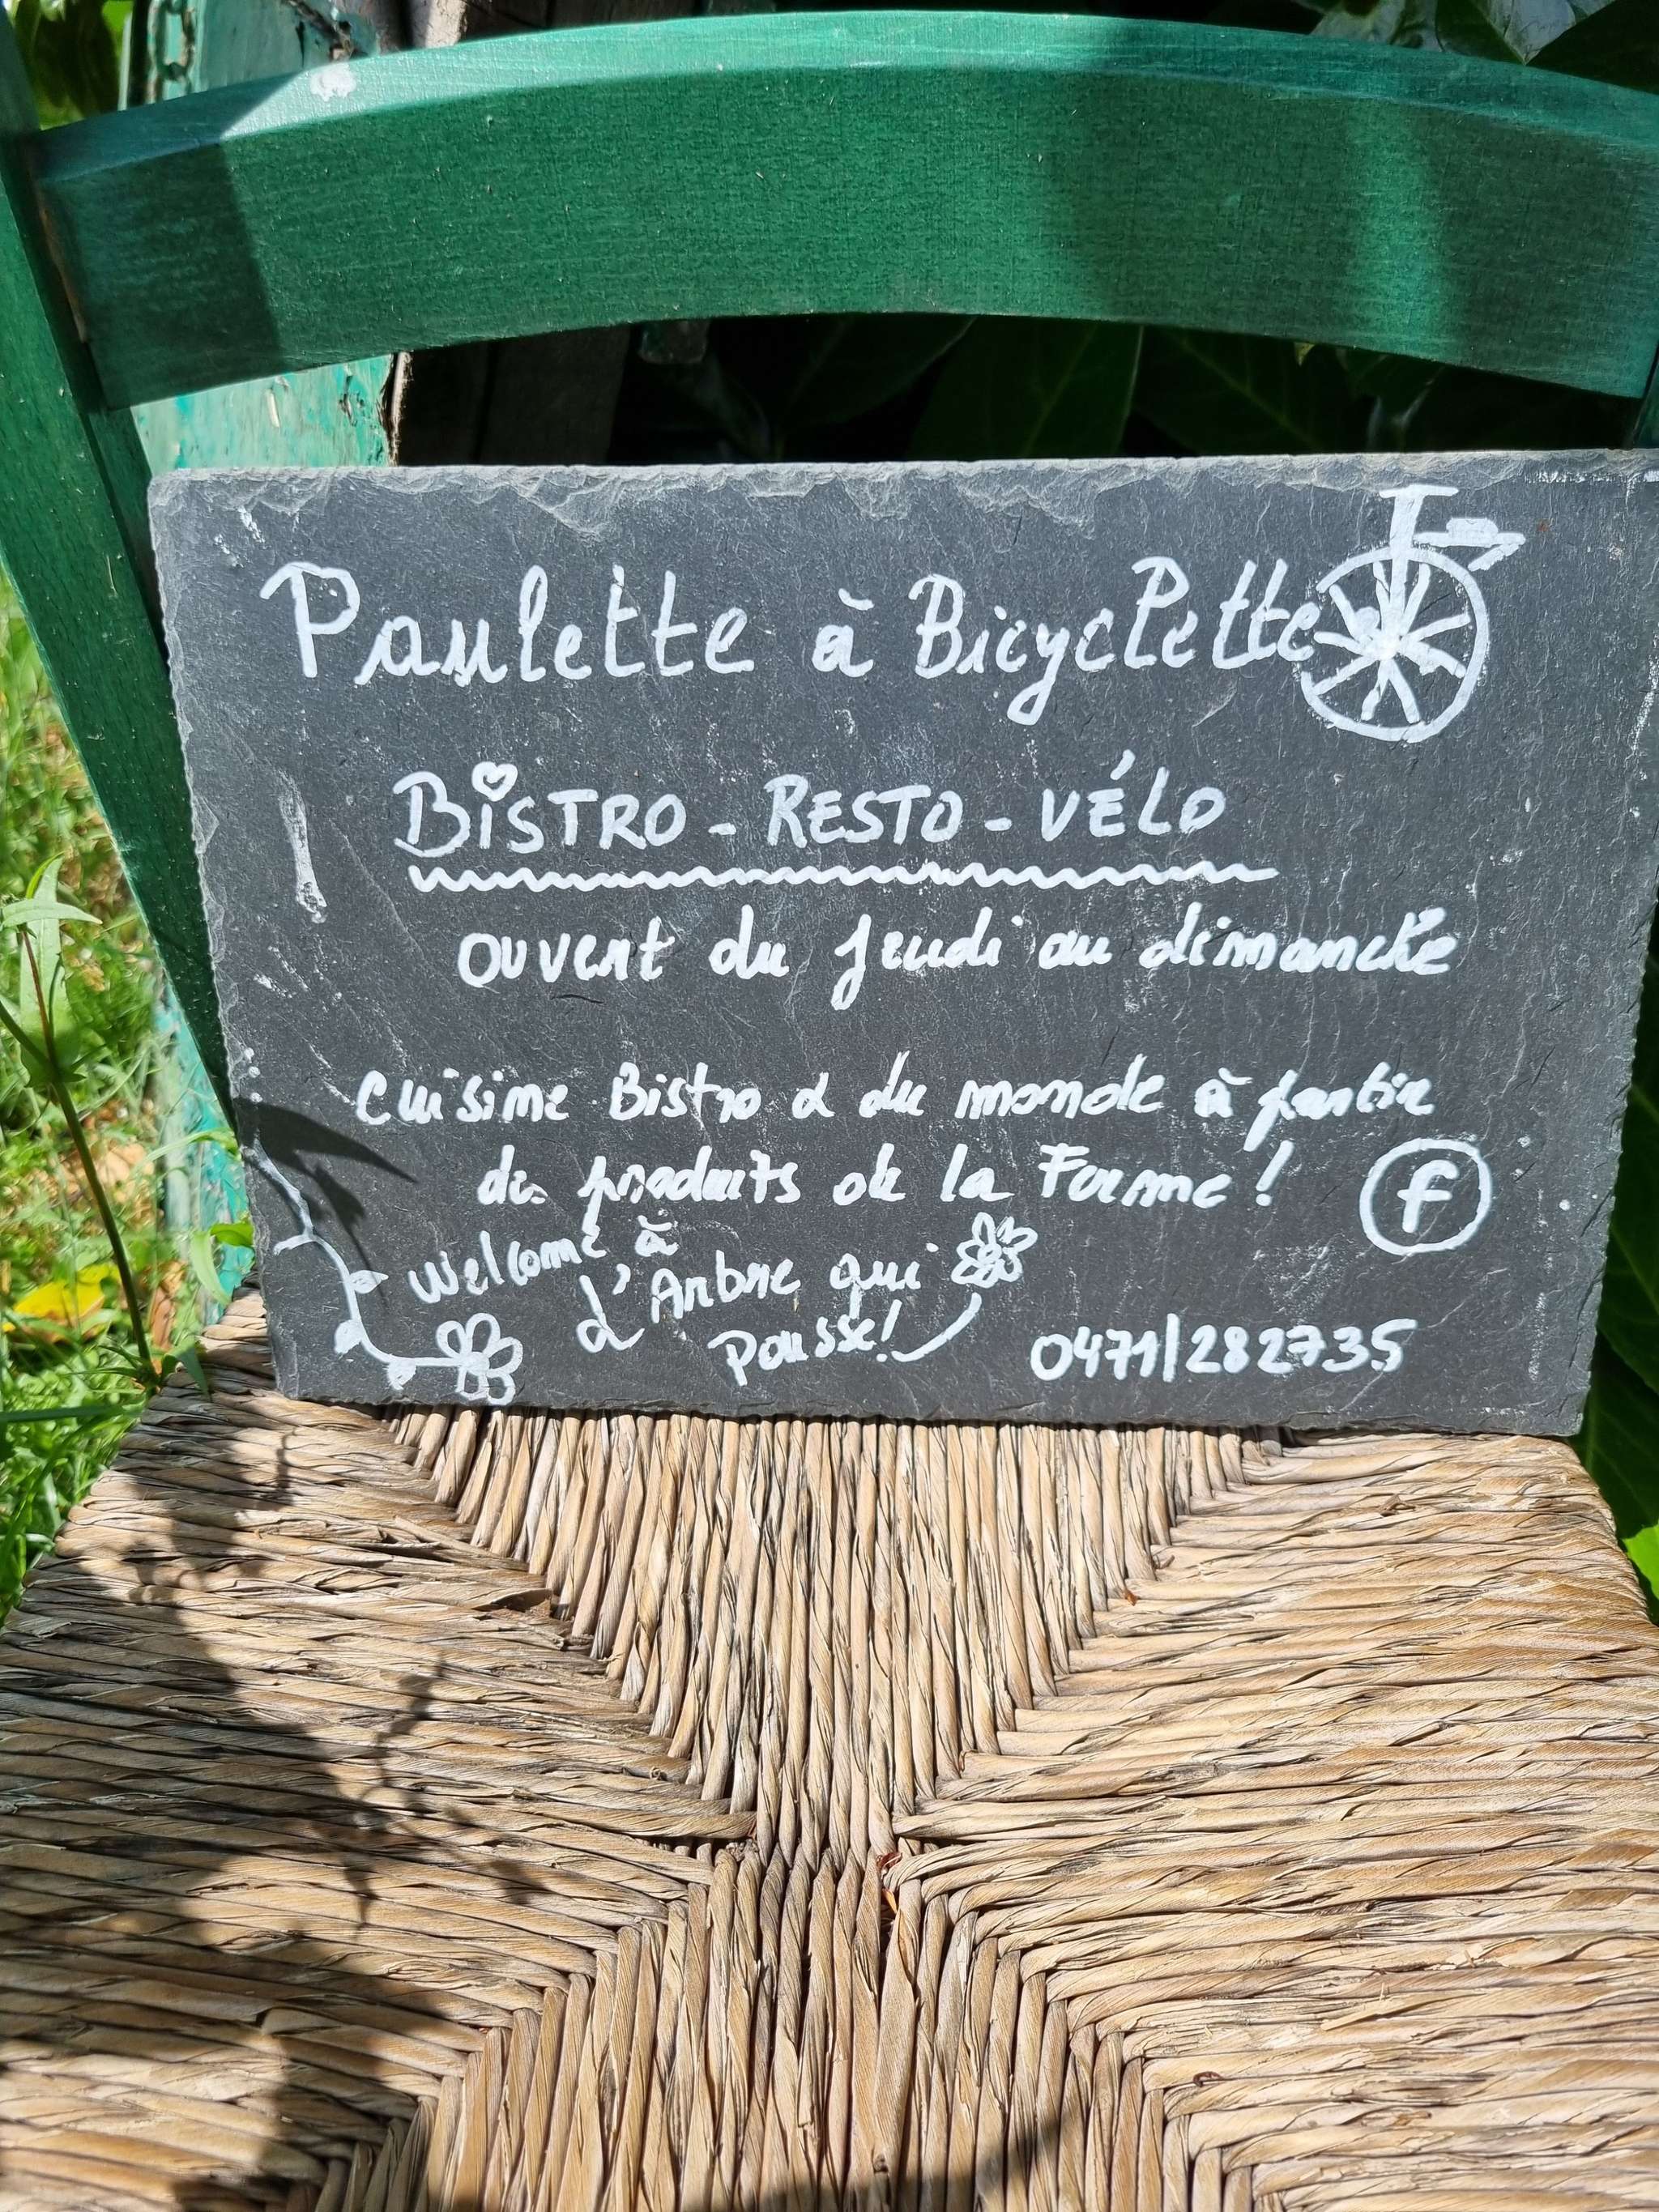 Paulette à Bicyclette
BiSTRO - RESTO - VÉLO
ouvert du jeudi au dimanche
cuisine Bistro & du monde à partir
de produits de la Ferme !
f
Welcome à
L'Arbre qui
Pousse!
0471/282735